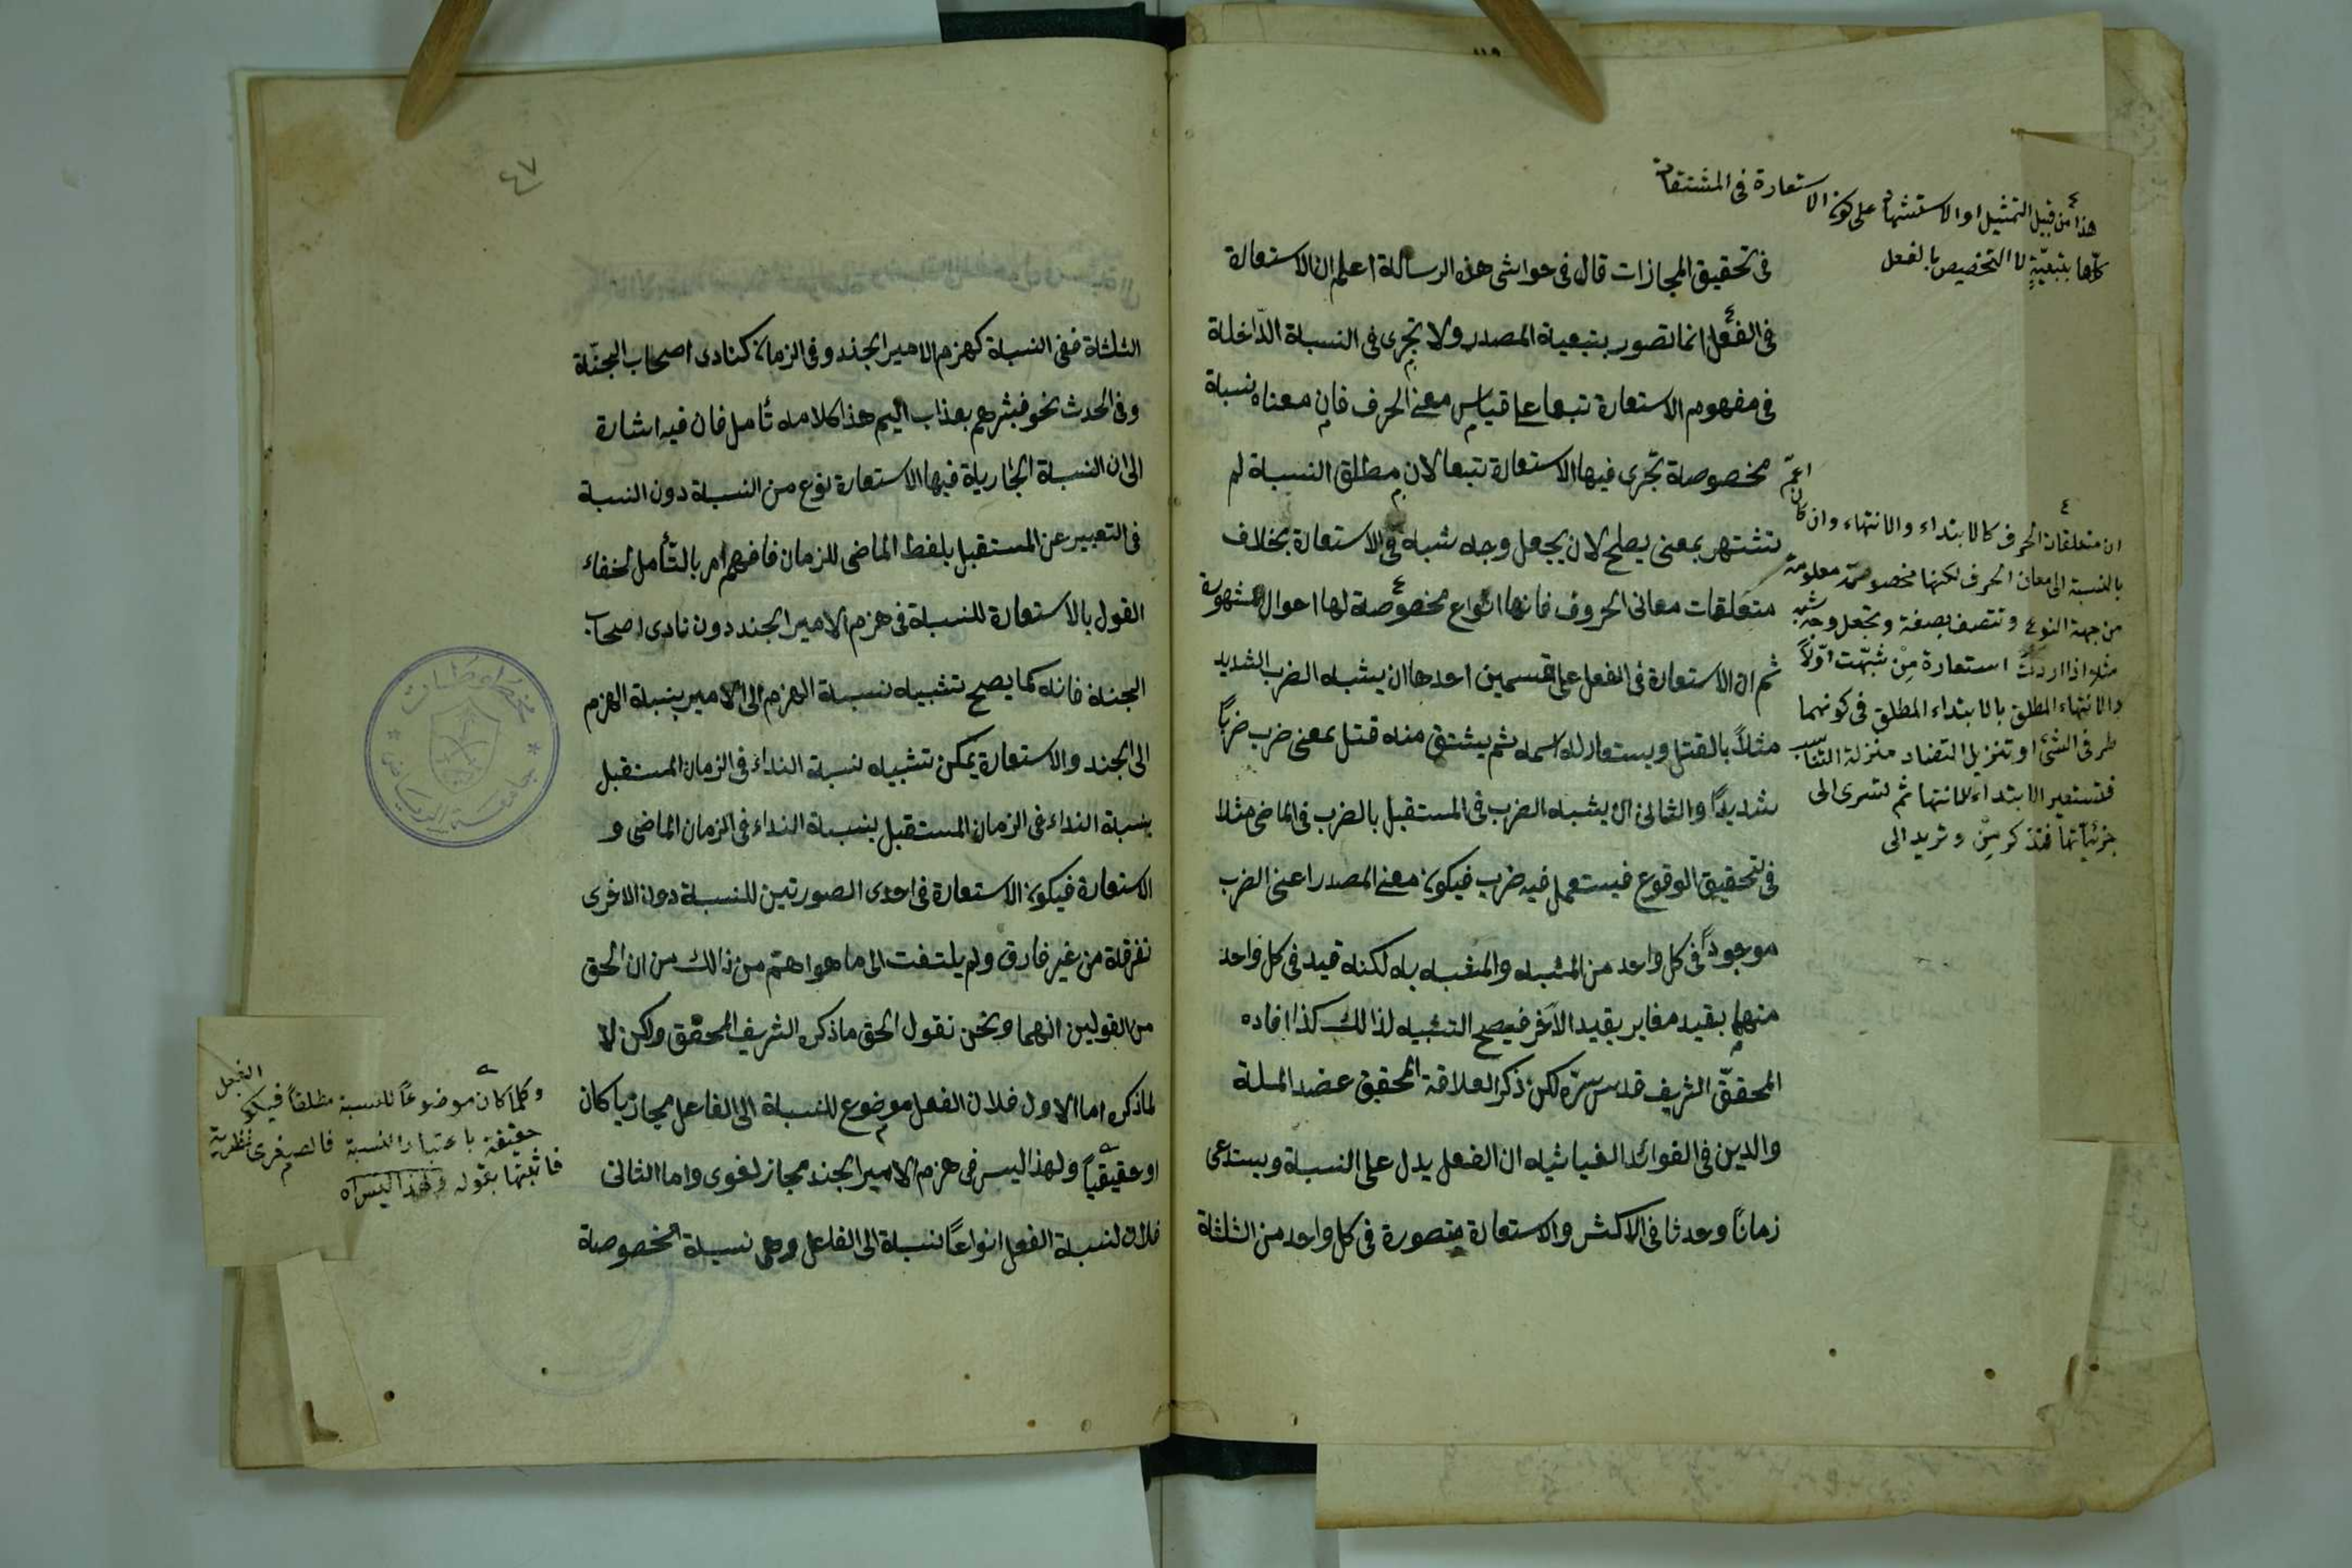 هذا من قبيل التمثيل او الاستشهاد على كون الاستعارة فى المشتقات
كلّها بتبعيّةٍ لا التخصيص بالفعل
فى تحقيق المجازات قال فى حواشى هذه الرسالة اعلم ان الاستعارة
فى الفعل انما تصور بتبعية المصدر ولا تجرى فى النسبة الدّاخلة
فى مفهومه الاستعارة تبعا على قياس معنى الحرف فان معناه نسبة
مخصوصة تجرى فيها الاستعارة تبعا لان مطلق النسبة لم
تشتهر بمعنى يصلح لان يجعل وجه شبه فى الاستعارة بخلاف
متعلقات معانى الحروف فانها انواع مخصوصة لها احوال مشهورة
ثم ان الاستعارة فى الفعل على قسمين احدها ان يشبه الضرب الشديد
مثلاً بالقتل ويستعار له اسمه ثم يشتق منه قتل بمعنى ضرب ضرباً
شديداً والثانى ان يشبه الضرب فى المستقبل بالضرب فى الماضى مثلا
فى تحقيق الوقوع فيستعمل فيه ضرب فيكون معنى المصدر اعنى الضرب
موجوداً فى كل واحد من المشبه والمشبه به لكنه قيد فى كل واحد
منهما بقيد مغاير بقيد الآخر فيصح التشبيه لذالك كذا افاده
المحقّق الشريف قدس سرّه لكن ذكر العلاقة المحقق عضد الملة
والدين فى الفوائد الغياثيه ان الفعل يدل على النسبة ويستدعى
زمانا وحدثا فى الاكثر والاستعارة متصورة فى كل واحد من الثلثة
اعمّ
ان متعلقات الحرف كالابتداء والانتهاء وان كان
بالنسبة الى معان الحرف لكنها مخصوصة معلومة
من جهة النوع وتتصف بصفة وتجعل وجه شبه
مثلا اذا اردت استعارة مِنْ شبّهت اوّلاً
والانتهاء المطلق بالابتداء المطلق فى كونهما
طرفى الشئ او تنزيل التضاد منزلة التناسب
فتستعير الابتداء للانتها ثم تسرى الى
جزئياتها فتذكر مِنْ وتريد الى
٤٧
الثلثة ففى النسبة كهزم الامير الجند وفى الزمان كنادى اصحاب الجنّة
وفى الحدث نحو فبشرهم بعذاب اليم هذا كلامه تأمل فان فيه اشارة
الى ان النسبة الجارية فيها الاستعارة نوع من النسبة دون النسبة
فى التعبير عن المستقبل بلفظ الماضى للزمان فافهم امر بالتّأمل لخفاء
القول بالاستعارة للنسبة فى هزم الامير الجند دون نادى اصحاب
الجنة فانه كما يصح تشبيه نسبة الهزم الى الامير بنسبة الهزم
الى الجند والاستعارة يمكن تشبيه نسبة النداء فى الزمان المستقبل
بنسبة النداء فى الزمان المستقبل بنسبة النداء فى الزمان الماضى و
الاستعارة فيكون الاستعارة فى احدى الصورتين للنسبة دون الاخرى
تفرقة من غير فارق ولم يلتفت الى ما هو اهتم من ذالك من ان الحق
من القولين انهما ونحن نقول الحق ما ذكره الشريف المحقق ولكن لا
لما ذكره اما الاول فلان الفعل موضوع للنسبة الى الفاعل مجازيا كان
او حقيقياً ولهذا ليس فى هزم الامير الجند مجاز لغوى واما الثانى
فلان لنسبة الفعل انواعاً نسبة الى الفاعل وهى نسبة مخصوصة
وكلما كان موضوعاً للنسبة مطلقاً فيكون الفعل
حقيقة باعتبار النسبة فالصغرى نظرية
فاثبتها بقوله ولهذا ليس اه
مخطوطات
جامعة الرياض